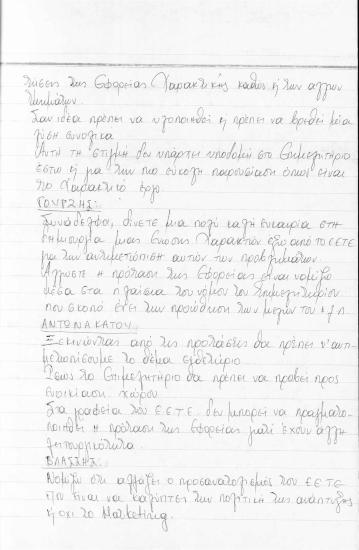 τήσεις της Εφορείας Χαρακτικής καθώς ή των άλλων
τμημάτων.
Σαν ιδέα πρέπει να υλοποιηθεί ή πρέπει να βρεθεί μία
λύση συνολικά
Αυτή τη στιγμή δεν υπάρχει υποδομή στο Επιμελητήριο
έστω ή για την πιο εύκολη παρουσίαση όπως είναι
το χαρακτικό έργο.
ΓΟΥΡΖΗΣ:
Συνάδελφοι, δίνετε μια πολύ καλή ευκαιρία στη
δημιουργία μιας Ένωσης Χαρακτών έξω από το ΕΕΤΕ
για την αντιμετώπιση αυτών των προβλημάτων.
Άλλωστε η πρόταση της Εφορείας είναι νομίζω
μέσα στα πλαίσια του νόμου του Επιμελητηρίου
που σκοπό έχει την προώθηση των μελών του κ.λ.π
ΑΝΤΩΝΑΚΑΤΟΥ:
Ξεκινώντας από τις προτάσεις θα πρέπει ν' αντι-
μετωπίσουμε το θέμα ειδικότερα
Ίσως το Επιμελητήριο θα πρέπει να προβεί προς
ενοικίαση χώρου
Στα γραφεία του Ε.Ε.Τ.Ε. δεν μπορεί να πραγματο-
ποιηθεί η πρόταση της Εφορείας γιατί έχουν άλλη
λειτουργικότητα.
ΒΛΑΣΣΗΣ:
Νομίζω ότι αλλάζει ο προσανατολισμός του Ε.Ε.Τ.Ε
που είναι να καλύπτει την πολιτική της ανάπτυξης
ή όχι το Marketing.